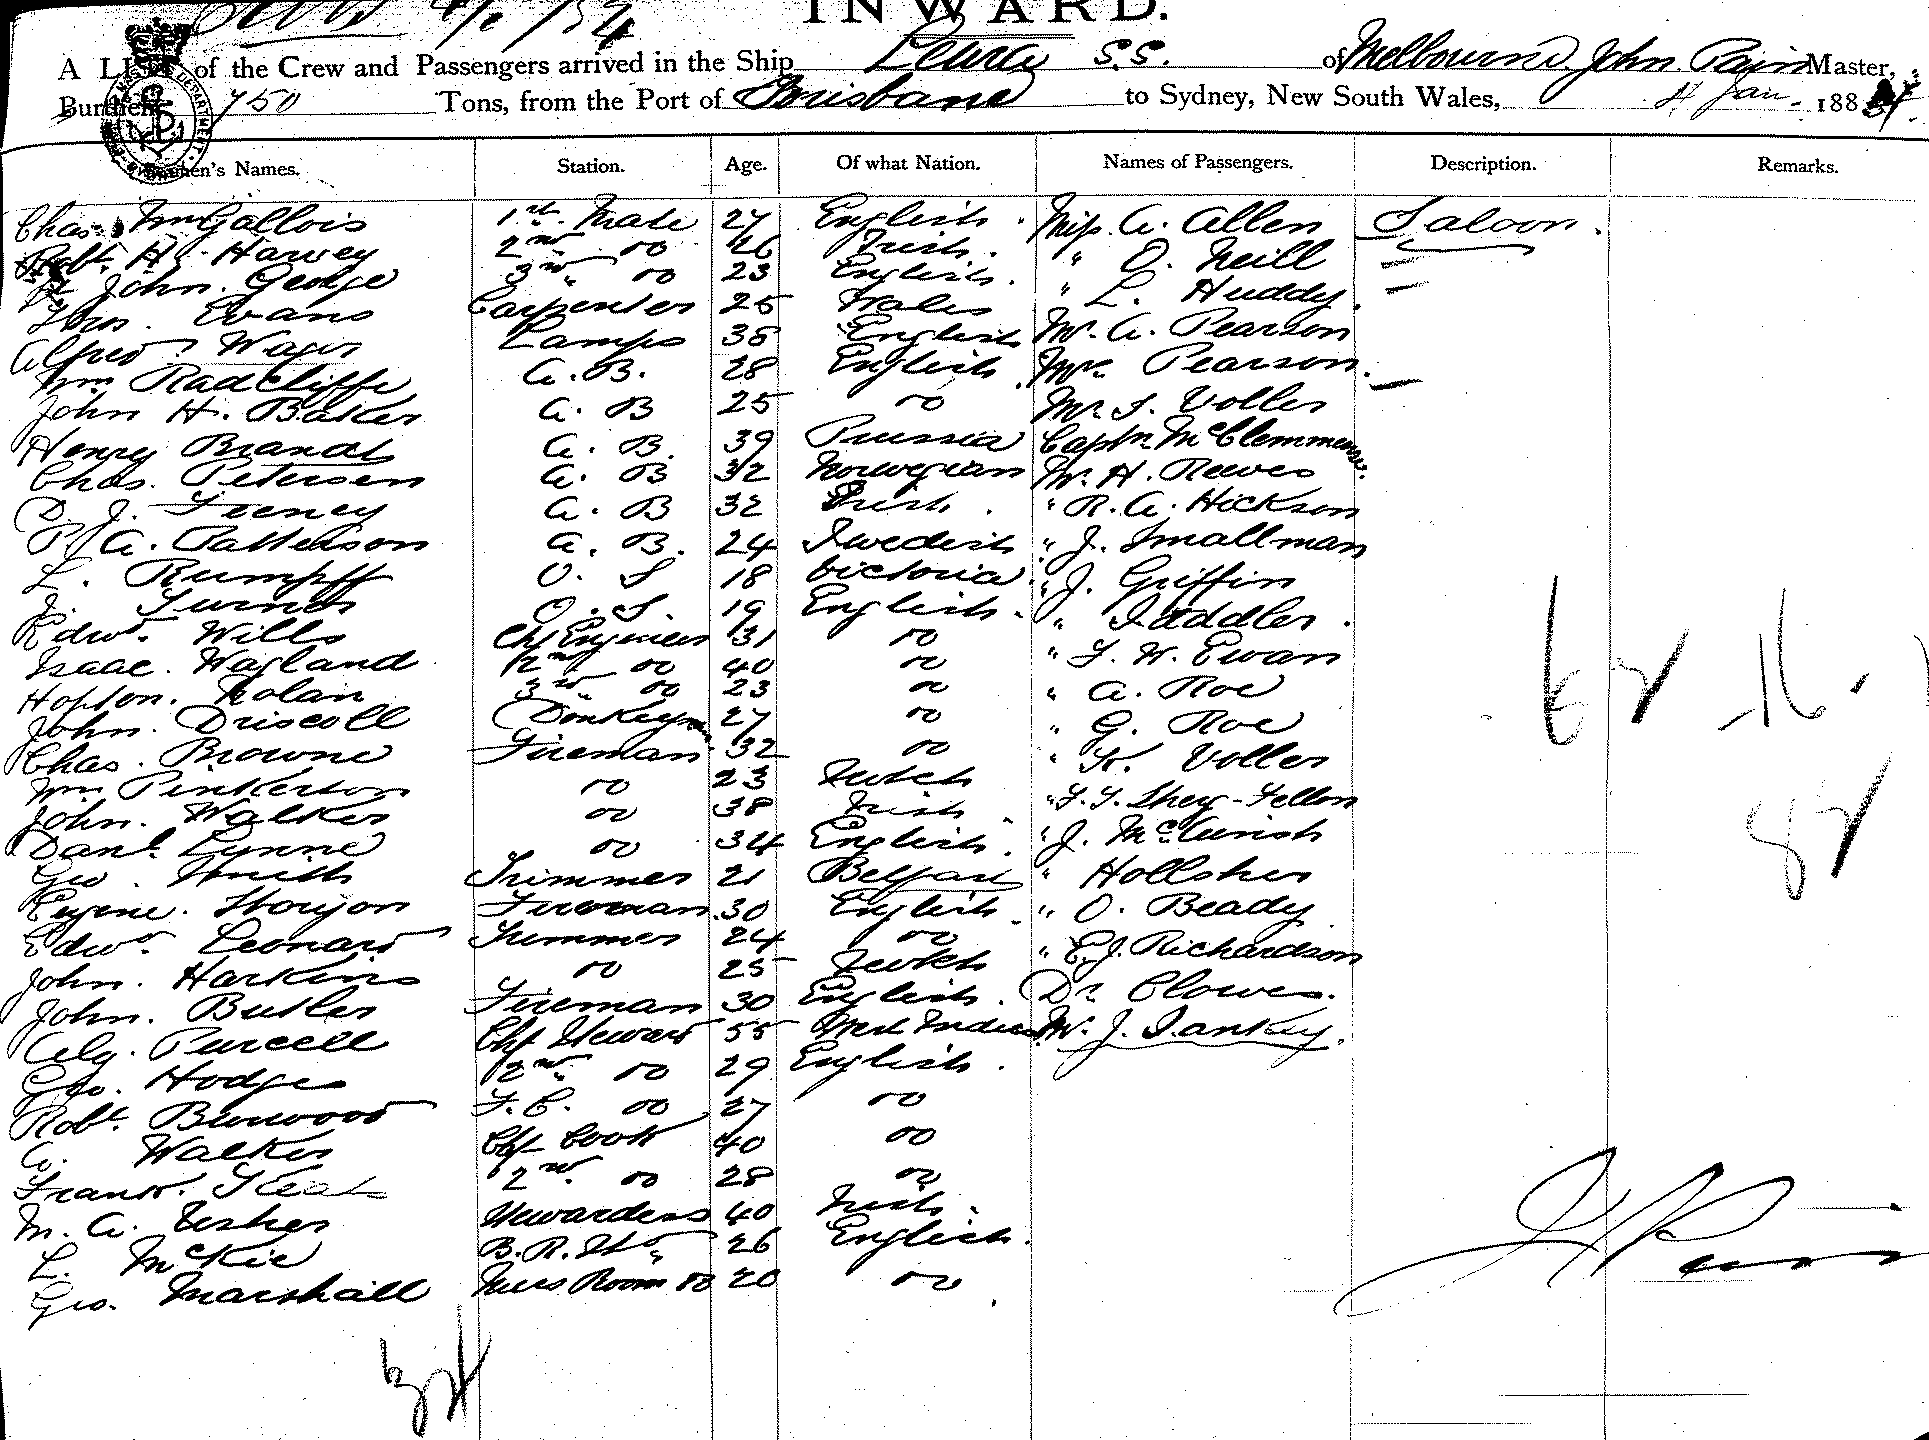 INWARD.
A LIST of the Crew and Passengers arrived in the Ship Leura S.S. of Melbourne John Pain Master,
Burthen 750 Tons, from the Port of Brisbane to Sydney, New South Wales, 4 Jan. 1884.
Seamen's Names. Station. Age. Of what Nation. Names of Passengers. Description. Remarks.
Chas. Wm Gallois 1st. Mate 27 English. Miss A. Allen Saloon.
Robt. H. Harvey 2nd do 26 Irish. " O. Neill
John. George 3rd do 23 English. " L. Huddy.
Thos. Evans Carpenter 25 Wales Mr. A. Pearson
Alfred Lamps 38 English Mrs Pearson.
Wm Radcliffe A. B. 28 English Mr. S. Voller
John H. Baker A. B 25 do Captn. McClemmens.
Henry Brandt A. B. 39 Prussia Mr. H. Reeves
Chas. Petersen A. B 32 Norwegian " R. A. Hickson
D. J. Feeney A. B 32 Irish. " J. Smallman
P. A. Patterson A. B. 24 Swedish " J. Griffin
L. Rumpff O. S 18 Victoria " Saddler.
J. Turner O. S. 19 English. " F. W. Ewan
Edwd. Wills Chf Engineer 31 do " A. Roe
Isaac. Wagland 2nd do 40 do " G. Roe
Hopton. Nolan 3rd do 23 do " Voller
John. Driscoll Donkeyman 27 do
Chas. Browne Fireman 32 do " J. McCurish
Wm Pinkerton do 23 Scotch
John. Walker do 38 Irish. " O. Beady
Danl. Lynne do 34 English. " E. J. Richardson
Geo. Smith Trimmer 21 Belfast Dr. Clowes.
Eugene. Fireman 30 English. Mr. J. Sankey.
Edwd Leonard Trimmer 24 do
John. Harkins do 25 Scotch
John. Butler Fireman 30 English.
Purcell Chf Steward 55 West Indies
Geo. Hodges 2nd do 29 English.
Robt. Burwood F. C. do 27 do
W. Walker Chf Cook 40 do
Frank. 2nd. do 28 do
M. A. Usher Stewardess 40 Irish.
L. McKie B. R. Std 26 English.
Geo. Marshall Mess Room do 20 do
J Pain
34